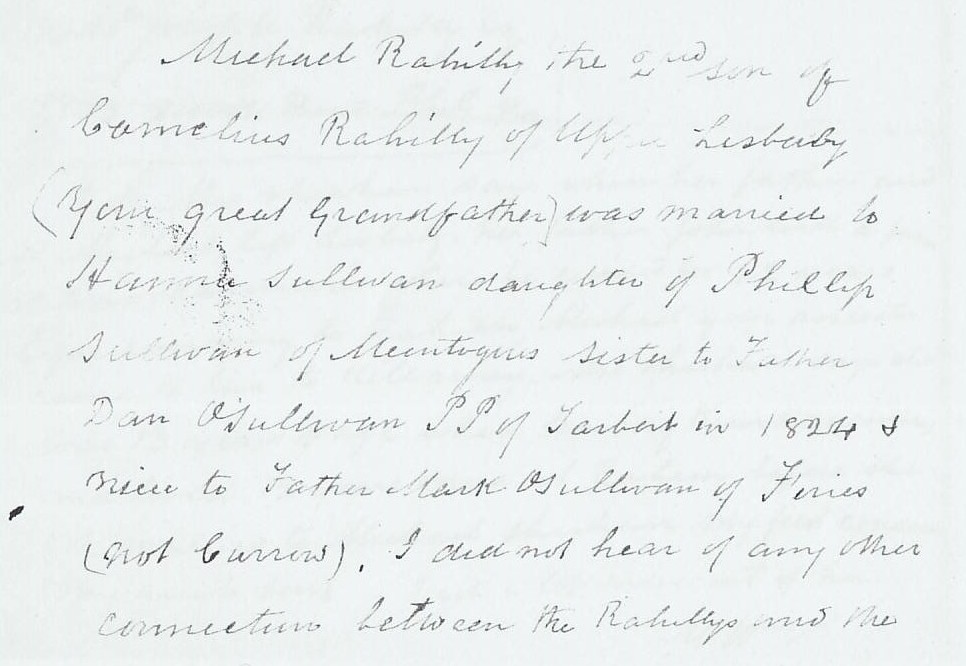 Michael Rahilly the 2nd son of
Cornelius Rahilly of Upper Lisbaby
(Your great Grandfather) was married to
Hanna Sullivan daughter of Phillip
Sullivan of sister to Father
Dan O'Sullivan PP of Tarbert in 1824 &
niece to Father Mark O'Sullivan of Firies
(not Currow). I did not hear of any other
connection between the Rahillys and the